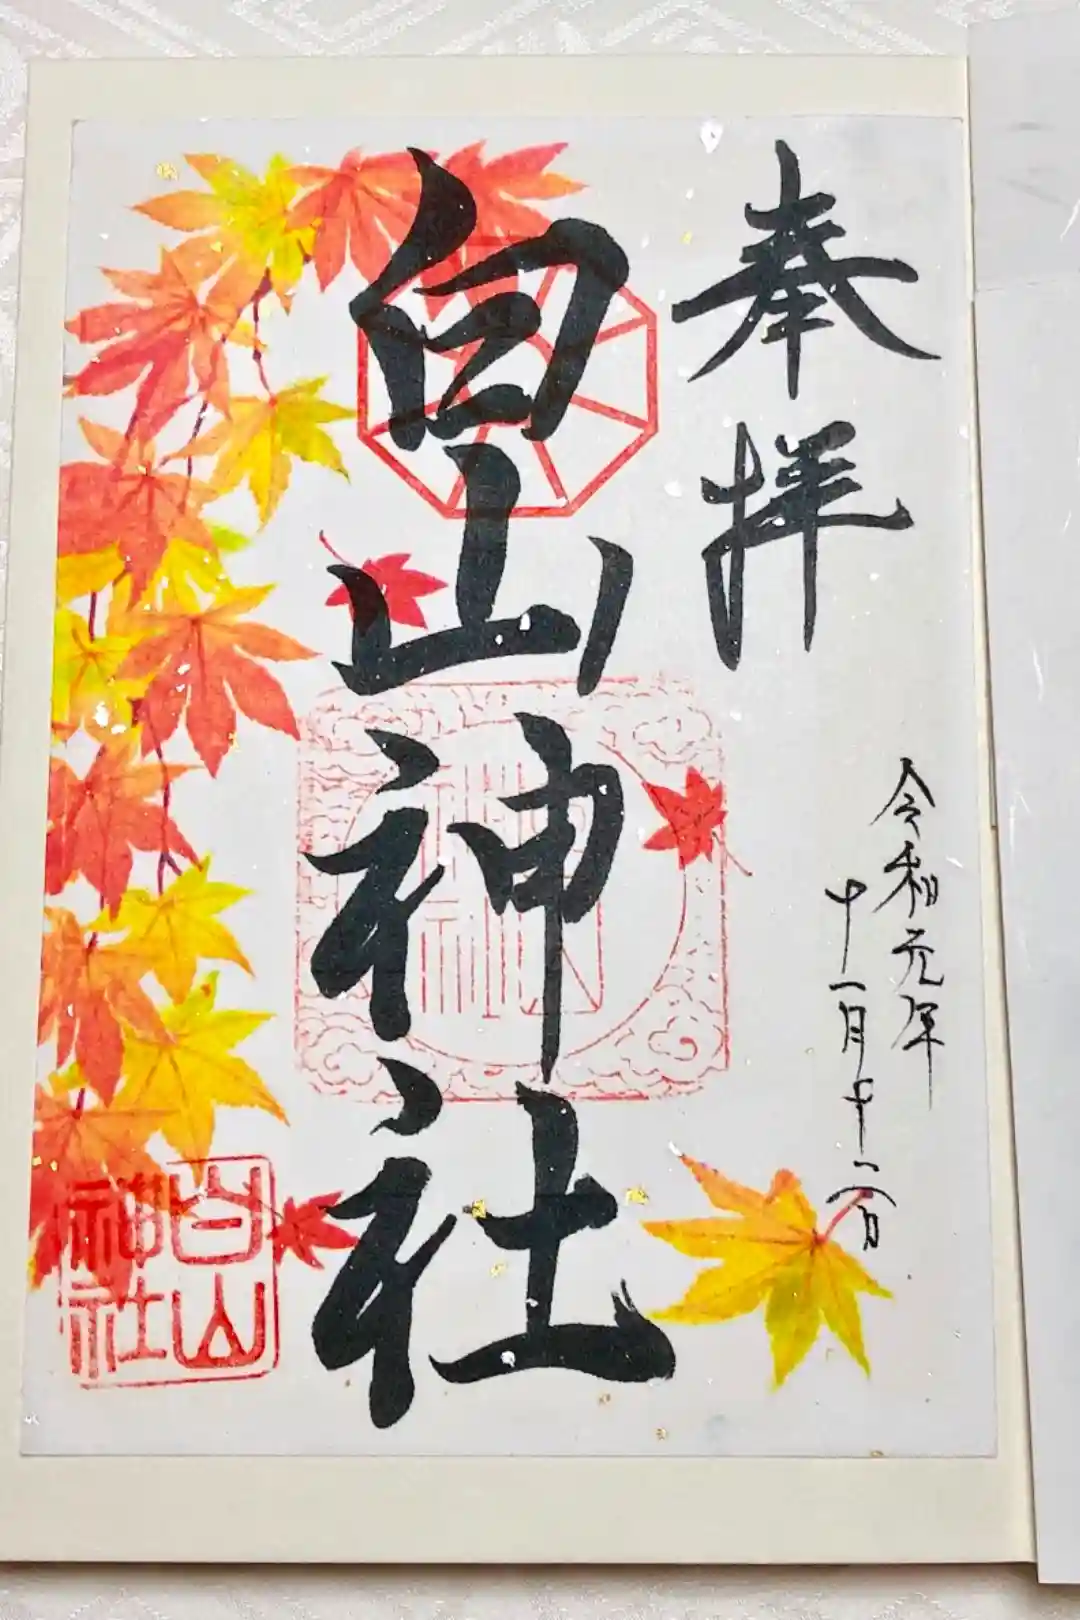 奉拝
白山神社
令和元年
十一月十二日
白山
神社